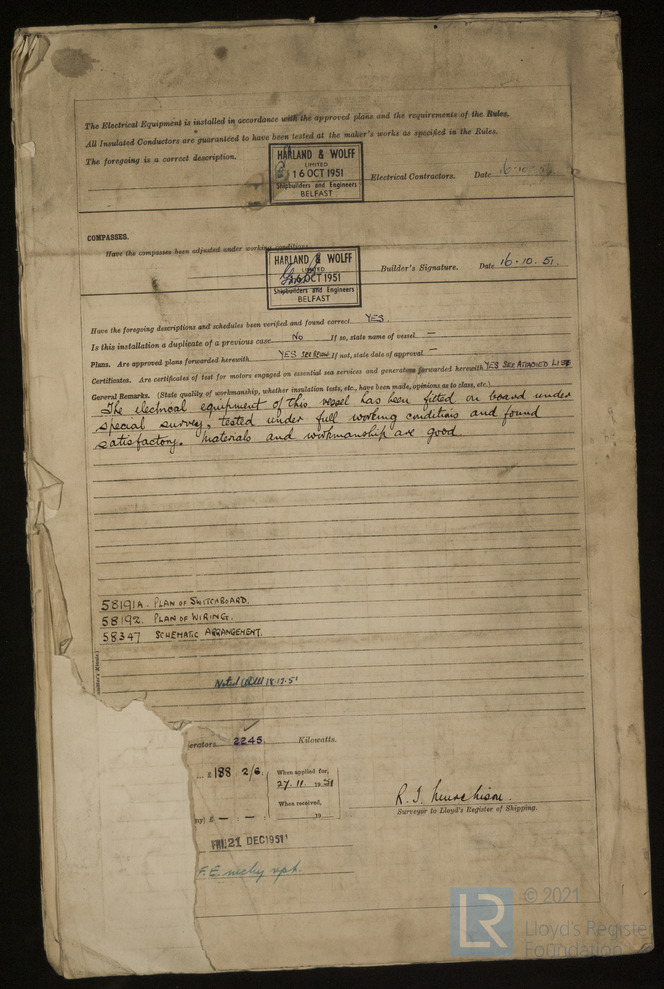 The Electrical Equipment is installed in accordance with the approved plans and the requirements of the Rules.
All Insulated Conductors are guaranteed to have been tested at the maker's works as specified in the Rules.
The foregoing is a correct description.
HARLAND & WOLFF
LIMITED
16 OCT 1951
Shipbuilders and Engineers
BELFAST
Electrical Contractors. Date 16·10·51
COMPASSES.
Have the compasses been adjusted under working conditions
HARLAND & WOLFF
LIMITED
16 OCT 1951
Shipbuilders and Engineers
BELFAST
Builder's Signature. Date 16·10·51.
Have the foregoing descriptions and schedules been verified and found correct YES.
Is this installation a duplicate of a previous case No If so, state name of vessel —
Plans. Are approved plans forwarded herewith YES SEE BELOW If not, state date of approval —
Certificates. Are certificates of test for motors engaged on essential sea services and generators forwarded herewith YES SEE ATTACHED LIST
General Remarks. (State quality of workmanship, whether insulation tests, etc., have been made, opinions as to class, etc.)
The electrical equipment of this vessel has been fitted on board under
special survey, tested under full working conditions and found
satisfactory. Materials and workmanship are good
58191A. PLAN OF SWITCHBOARD.
58192. PLAN OF WIRING.
58347 SCHEMATIC ARRANGEMENT.
Noted
erators 2245. Kilowatts.
£188 2/6.
When applied for,
27.11. 1951
When received,
ny) £ — : — : 19
R. J. Murchison.
Surveyor to Lloyd's Register of Shipping.
FRI. 21 DEC 1951
F.E. rpt.
LR
© 2021
Lloyd's Register
Foundation